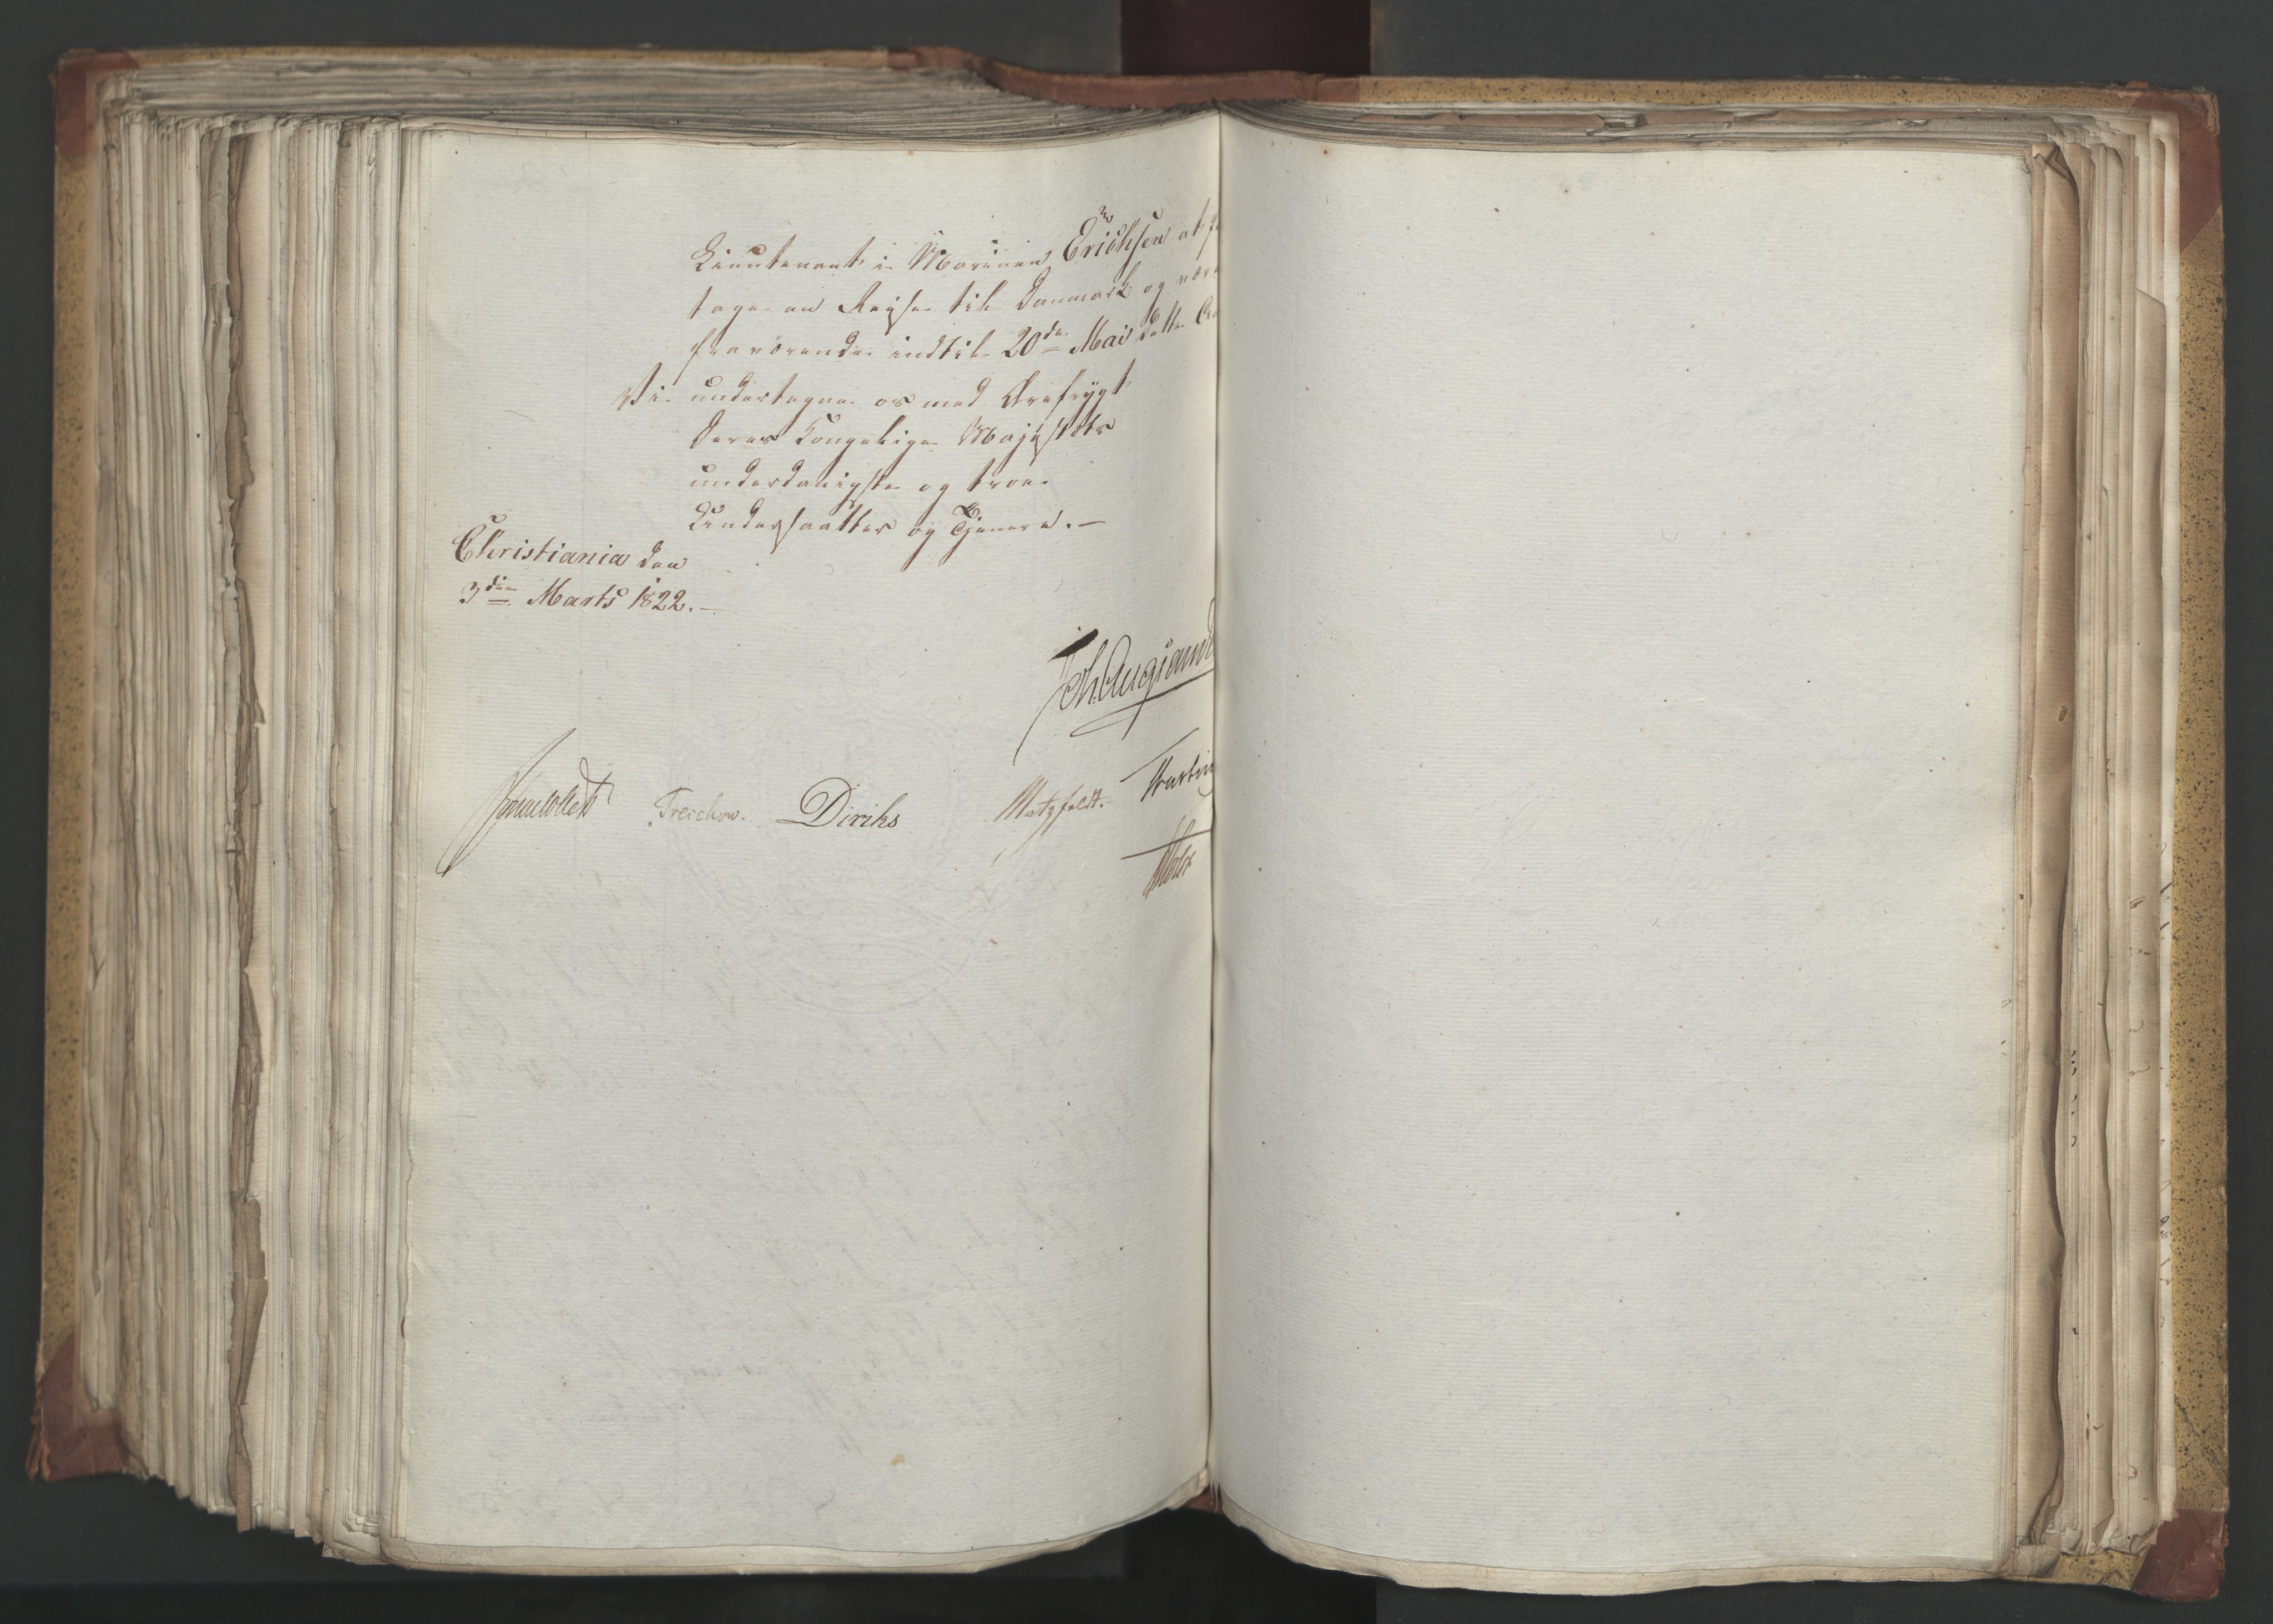 Lieutenant i Marinen Erichsen at
tage en Reise til Danmark og vær
fraværende indtil 20de Mai dette
Vi undertegne os med Ærefrygt
Deres Kongelige Majestæts
underdanigste og troe
Undersaatter og Tjenere. –
Christiania den
3die Marts 1822. –
Joh. Aug Sand
Sommerhielm Treschow. Diriks Motzfeldt. Krastin
Holst